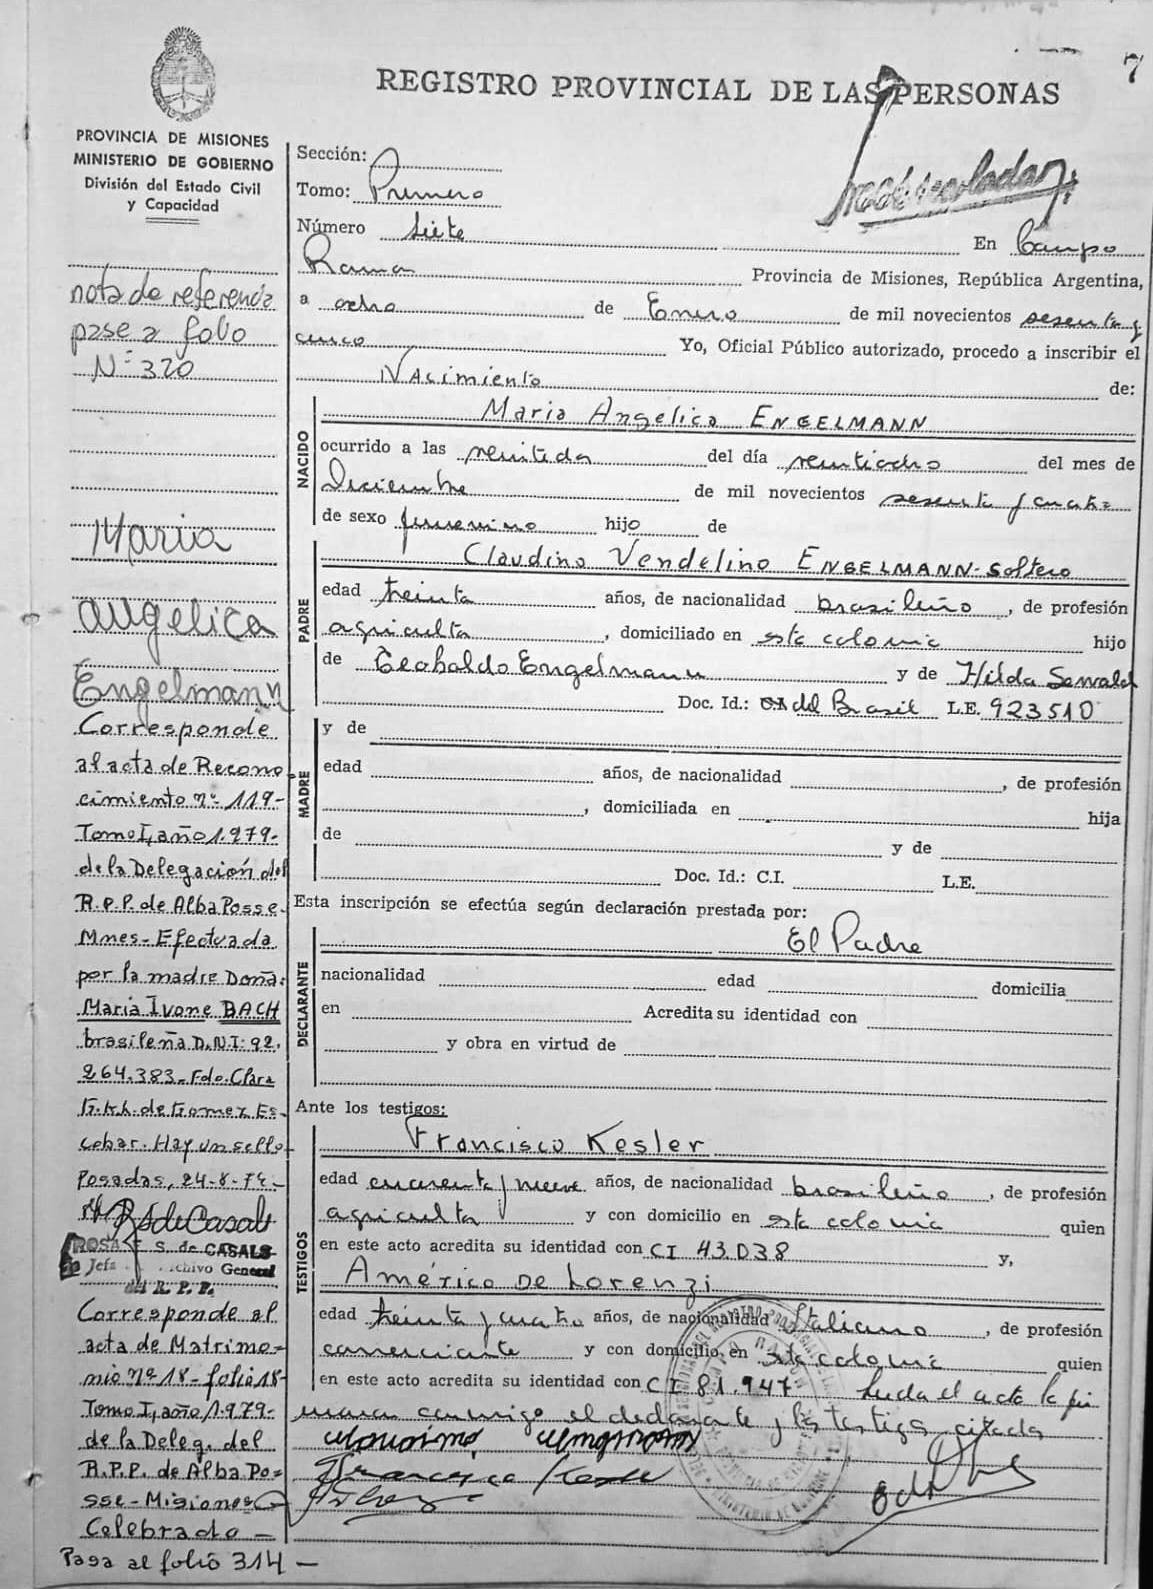 7
REGISTRO PROVINCIAL DE LAS PERSONAS
PROVINCIA DE MISIONES
MINISTERIO DE GOBIERNO
División del Estado Civil
y Capacidad
nota de referencia
pase a folio
Nº 320
Maria
Angelica
Engelmann
Corresponde
al acta de Recono
cimiento nº 119-
Tomo I, año 1.979-
de la Delegación del
R.P.P. de Alba Posse-
Mnes- Efectuada
por la madre Doña:
Maria Ivone BACH
brasileña D.N.I: 92.
264.383- Fdo. Clara
de Gomez Es-
cobar. Hay un sello-
Posadas, 24-8-79-
RSdeCasals
ROSA S. de CASALS
Jefa Archivo General
del R. P. P.
Corresponde al
acta de Matrimo=
nio nº 18- folio 18-
Tomo I, año 1.979-
de la Deleg. del
R.P.P. de Alba Po=
sse- Misiones
Celebrado -
Pasa al folio 314 -
Sección:
Tomo: Primero
Número siete En Campo
Ramon Provincia de Misiones, República Argentina,
a ocho de Enero de mil novecientos sesenta y
cinco Yo, Oficial Público autorizado, procedo a inscribir el
Nacimiento de:
NACIDO
Maria Angelica ENGELMANN
ocurrido a las del día veinticuatro del mes de
Diciembre de mil novecientos sesenta y cuatro
de sexo femenino hijo de
PADRE
Claudino Vendelino ENGELMANN- Soltero
edad treinta años, de nacionalidad brasileño, de profesión
agriculta, domiciliado en esta colonia hijo
de Teobaldo Engelmann y de Hilda Sewald
Doc. Id.: del Brasil L.E. 923510
MADRE
y de
edad años, de nacionalidad, de profesión
, domiciliada en hija
de y de
Doc. Id.: C.I. L.E.
Esta inscripción se efectúa según declaración prestada por:
El Padre
DECLARANTE
nacionalidad edad domicilia
en Acredita su identidad con
y obra en virtud de
Ante los testigos:
TESTIGOS
Francisco Kesler
edad cuarenta y nueve años, de nacionalidad brasileño, de profesión
agriculta y con domicilio en esta colonia quien
en este acto acredita su identidad con CI 43.038 y,
Américo De Lorenzi
edad treinta y cuatro años, de nacionalidad Italiano, de profesión
comerciante y con domicilio en esta colonia quien
en este acto acredita su identidad con CI 81.947- Leida el acta la fir
maron conmigo el declarante y los testigos citados
Francisco Kesler